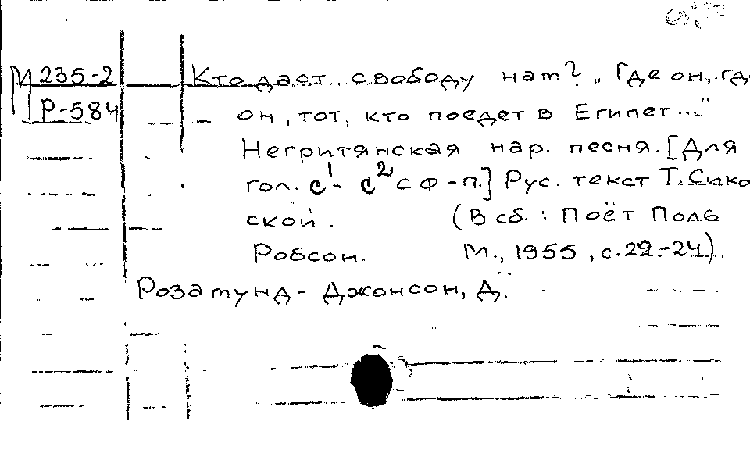 М 235-2 Кто даст свободу нам? „Где он, гд
Р-584 он, тот, кто поедет в Египет..."
Негритянская нар. песня. [Для
гол. c¹ - c² с ф-п.] Рус. текст Т. Сико
ской. (В сб.: Поёт Поль
Робсон. М., 1955, с. 22-24).
Розамунд-Джонсон, Д.